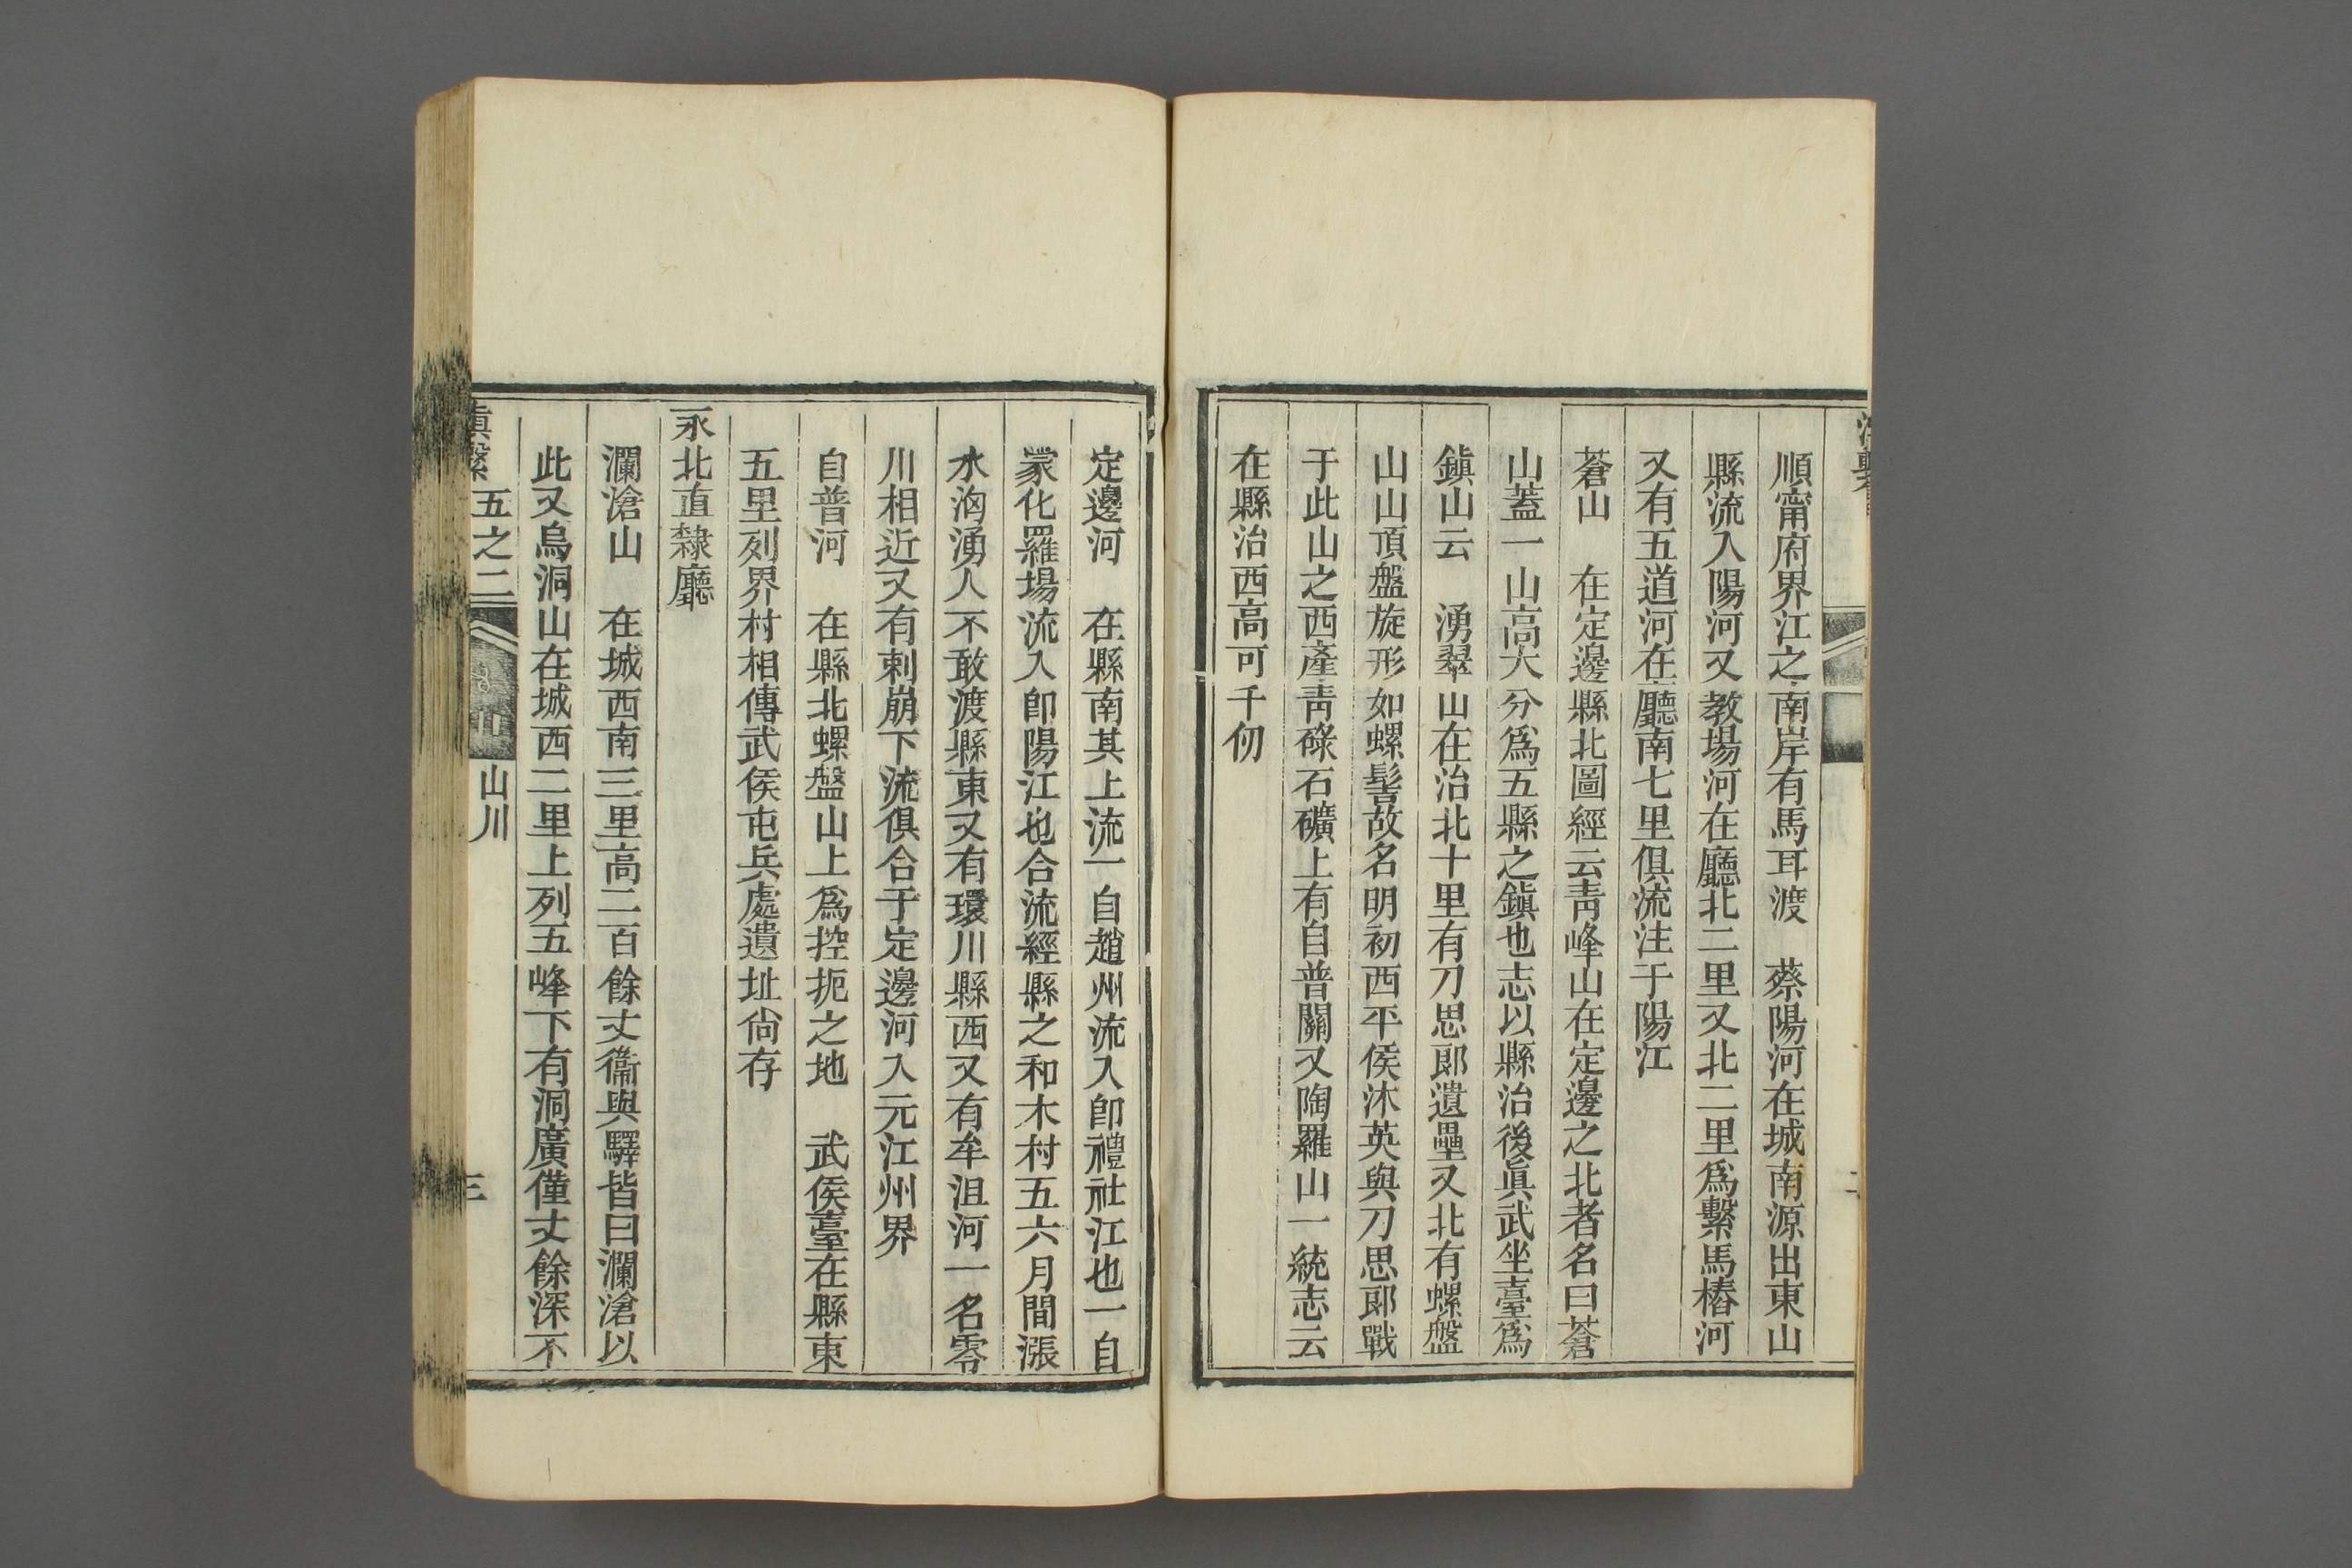 順甯府界江之南岸有馬耳渡　蔡陽河在城南源出東山
縣流入陽河又教場河在廳北二里又北二里爲繫馬樁河
又有五道河在廳南七里俱流注于陽江
蒼山　在定邊縣北圖經云靑峰山在定邊之北者名曰蒼
山蓋一山高大分爲五縣之鎭也志以縣治後眞武坐臺爲
鎭山云　湧翠山在治北十里有刀思郎遺壘又北有螺盤
山山頂盤旋形如螺髻故名明初西平侯沐英與刀思郎戰
于此山之西產靑碌石礦上有自普關又陶羅山一統志云
在縣治西高可千仞
定邊河　在縣南其上流一自趙州流入卽禮社江也一自
蒙化羅塲流入卽陽江也合流經縣之和木村五六月間漲
水洶湧人不敢渡縣東又有環川縣西又有牟沮河一名零
川相近又有剌崩下流俱合于定邊河入元江州界
自普河　在縣北螺盤山上爲控扼之地　武侯臺在縣東
五里列界村相傳武侯屯兵處遺址尙存
永北直隸廳
瀾滄山　在城西南三里高二百餘丈衞與驛皆曰瀾滄以
此又烏洞山在城西二里上列五峰下有洞廣僅丈餘深不
滇繫　五之二　山川　三